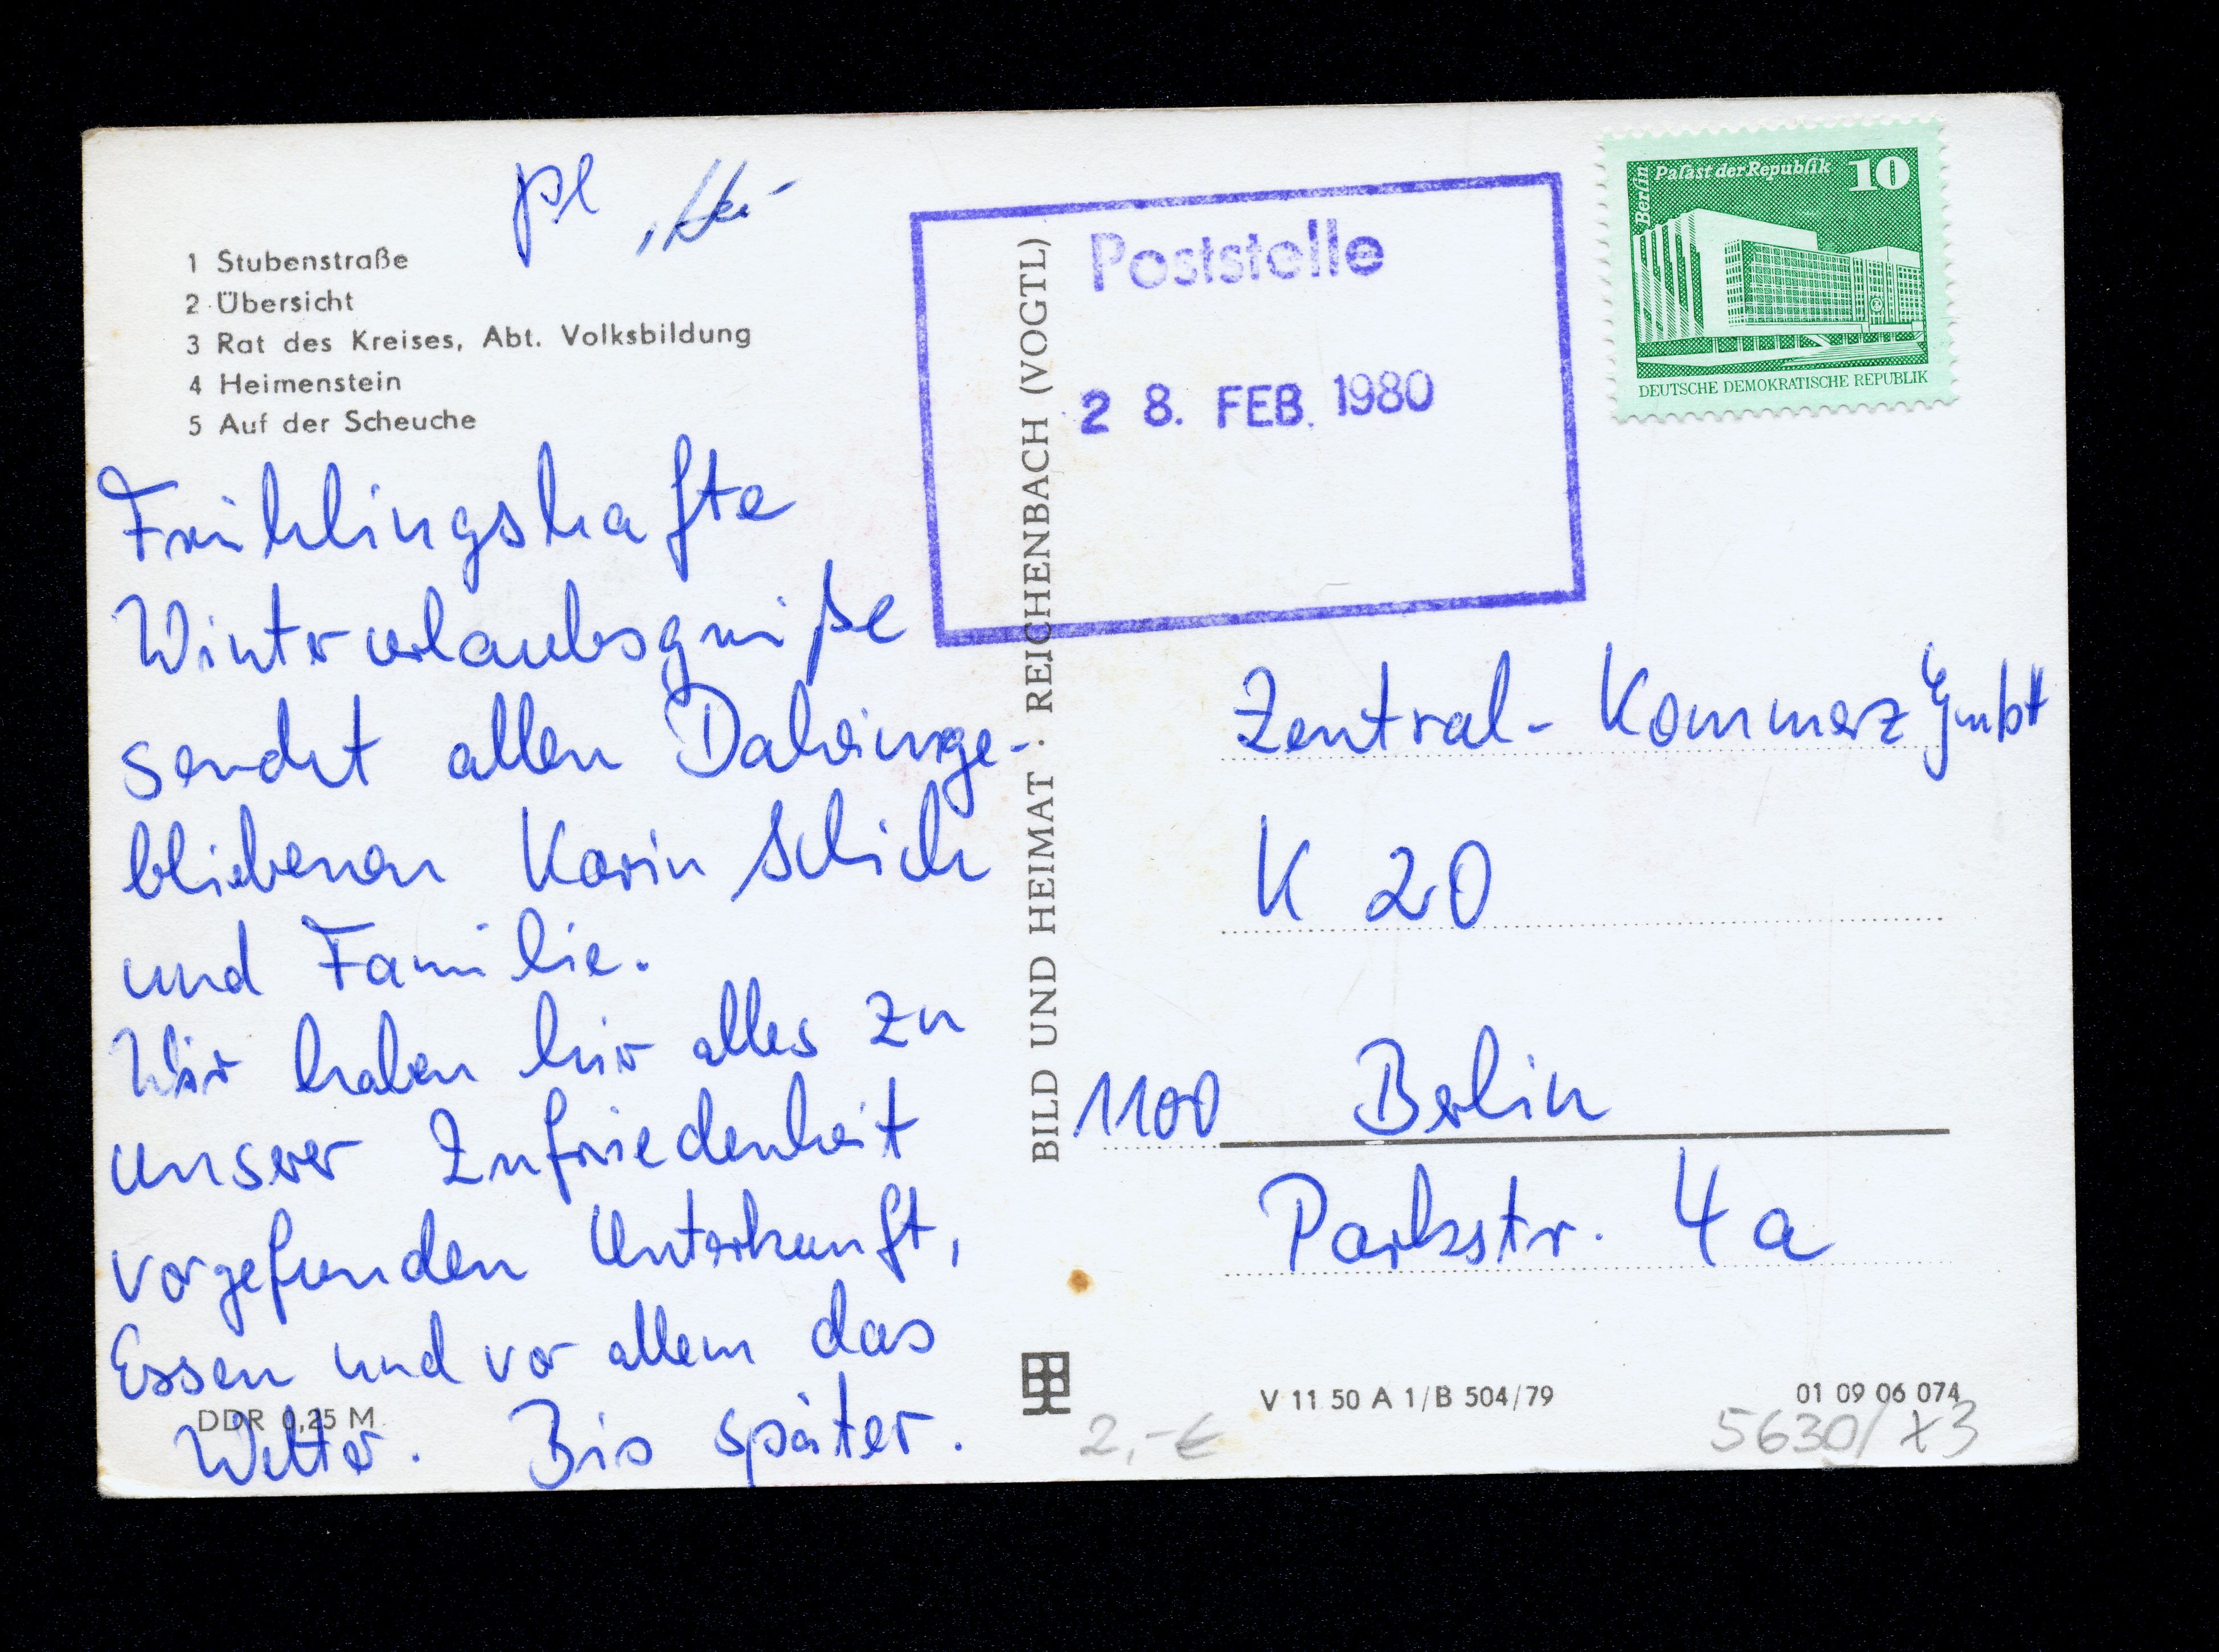 pl
1 Stubenstraße
2 Übersicht
3 Rat des Kreises, Abt. Volksbildung
4 Heimenstein
5 Auf der Scheuche
Frühlingshafte
Winterurlaubsgrüße
sendet allen Daheimge-
bliebenen Karin Schich
und Familie.
Wir haben hier alles zu
unserer Zufriedenheit
vorgefunden Unterkunft,
Essen und vor allem das
Wetter. Bis später.
DDR 0,25 M
BILD UND HEIMAT · REICHENBACH (VOGTL)
Poststelle
28. FEB. 1980
Berlin
Palast der Republik 10
DEUTSCHE DEMOKRATISCHE REPUBLIK
Zentral-Kommerz GmbH
K 20
1100 Berlin
Parkstr. 4a
V 11 50 A 1/B 504/79
01 09 06 074
2,-€
5630/X3